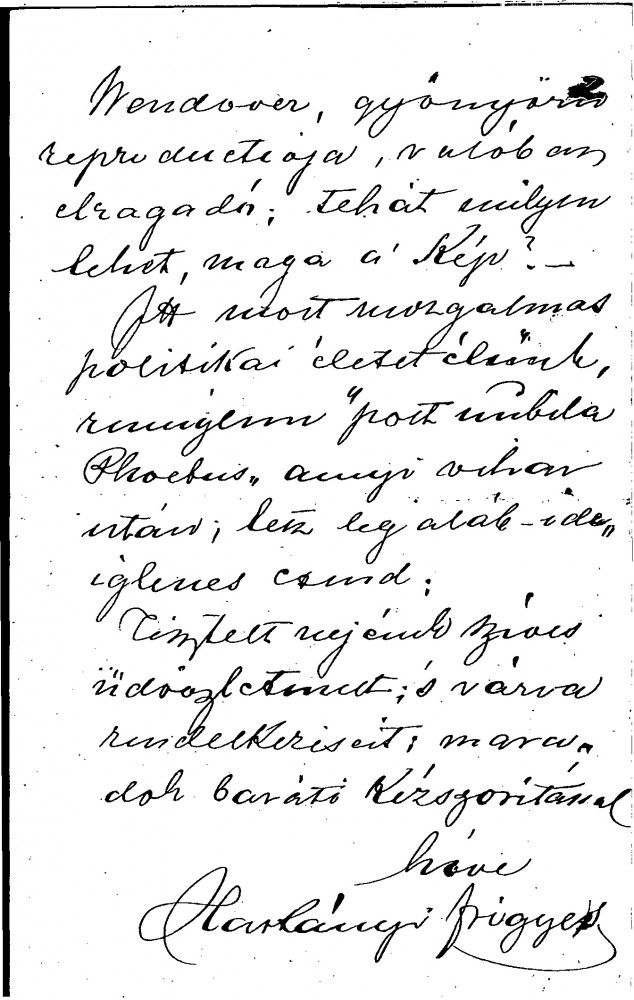 2
Wendover, gyönyörü
reproductiója, valóban
elragadó; tehát milyen
lehet, maga a' Kép? —
Itt most mozgalmas
politikai életet élünk,
reméglem "post nubila
Phoebus„ annyi vihar
után; lesz legaláb - ide„
iglenes csend;
Tisztelt nejének szíves
üdvözletemet; s várva
rendelkezéseit; mara„
dok baráti Kézszorítással
híve
Harkányi Frigyes